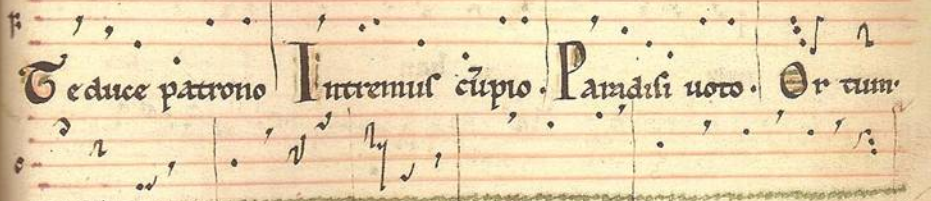 Te duce patrono Intremus cu̅pio. Paradisi uoto. Or tum.